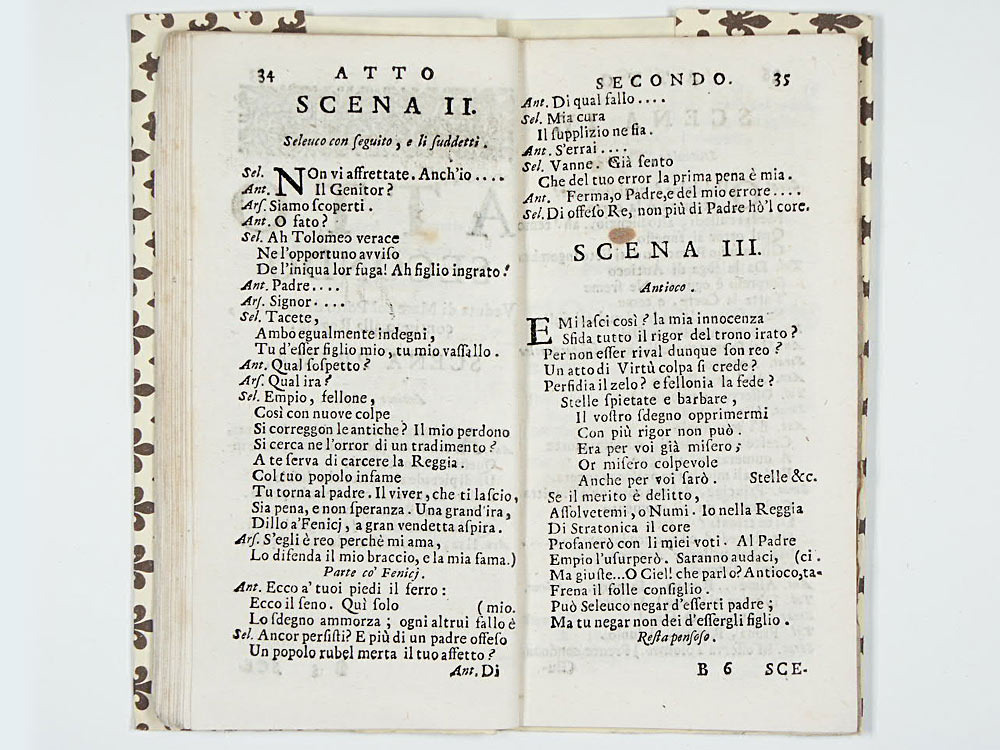 34 ATTO
SCENA II.
Seleuco con ſeguito, e li ſuddetti.
Sel. NOn vi affrettate. Anch'io ....
Ant. Il Genitor?
Arſ. Siamo ſcoperti.
Ant. O fato?
Sel. Ah Tolomeo verace
Ne l'opportuno avviſo
De l'iniqua lor fuga! Ah figlio ingrato!
Ant. Padre....
Arſ. Signor. ...
Sel. Tacete,
Ambo egualmente indegni,
Tu d'eſſer figlio mio, tu mio vaſſallo.
Ant. Qual ſoſpetto?
Arſ. Qual ira?
Sel. Empio, fellone,
Così con nuove colpe
Si correggon le antiche? Il mio perdono
Si cerca ne l'orror di un tradimento?
A te ſerva di carcere la Reggia.
Col tuo popolo infame
Tu torna al padre. Il viver, che ti laſcio,
Sia pena, e non ſperanza. Una grand'ira,
Dillo a'Fenicj, a gran vendetta aſpira.
Arſ. S'egli è reo perchè mi ama,
Lo difenda il mio braccio, e la mia fama.)
Parte co' Fenicj.
Ant. Ecco a' tuoi piedi il ferro:
Ecco il ſeno. Quì ſolo (mio.
Lo ſdegno ammorza; ogni altrui fallo è
Sel. Ancor perſiſti? E più di un padre offeſo
Un popolo rubel merta il tuo affetto?
Ant. Di
SECONDO. 35
Ant. Di qual fallo ....
Sel. Mia cura
Il ſupplizio ne ſia.
Ant. S'errai ....
Sel. Vanne. Già ſento
Che del tuo error la prima pena è mia.
Ant. Ferma, o Padre, e del mio errore ....
Sel. Di offeſo Re, non più di Padre hò'l core.
SCENA III.
Antioco.
E Mi laſci così? la mia innocenza
Sfida tutto il rigor del trono irato?
Per non eſſer rival dunque ſon reo?
Un atto di Virtù colpa ſi crede?
Perfidia il zelo? e fellonia la fede?
Stelle ſpietate e barbare,
Il voſtro ſdegno opprimermi
Con più rigor non può.
Era per voi già miſero;
Or miſero colpevole
Anche per voi ſarò. Stelle &c.
Se il merito è delitto,
Aſſolvetemi, o Numi. Io nella Reggia
Di Stratonica il core
Profanerò con li miei voti. Al Padre
Empio l'uſurperò. Saranno audaci, (ci.
Ma giuſte...O Ciel! che parlo? Antioco, ta-
Frena il folle conſiglio.
Può Seleuco negar d'eſſerti padre;
Ma tu negar non dei d'eſſergli figlio.
Reſta penſoſo.
B 6 SCE-